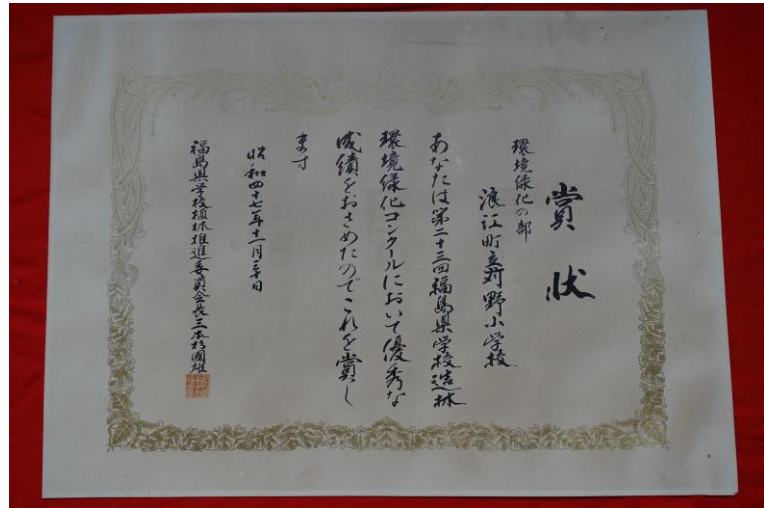 賞状
環境緑化の部
浪江町立苅野小学校
あなたは第二十三回福島県学校造林
環境緑化コンクールにおいて優秀な
成績をおさめたのでこれを賞し
ます
昭和四十七年十一月二十日
福島県学校植林推進委員会長三本杉國雄